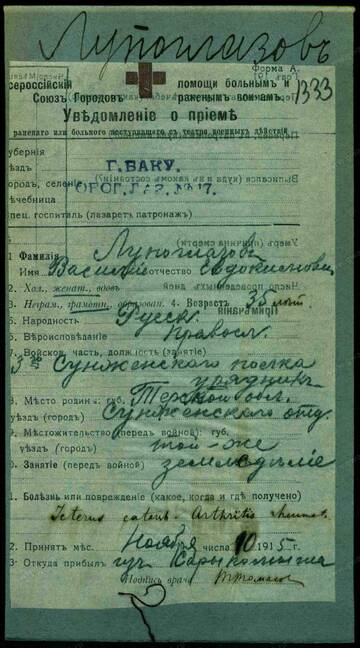 Лупоглазовъ
Форма А.
сероссійскій помощи больнымъ и
Союзъ Городовъ раненымъ воинамъ. 1333
Увѣдомленіе о пріемѣ
раненаго или больного поступающаго съ театра военныхъ дѣйствій
губернія
Г. БАКУ.
ородъ, селеніе
лечебница
пец. госпиталь (лазаретъ патронажъ)
1 Фамилія Лупоглазовъ
Имя Василій отчество Евдокимовичъ
2. Хол., женат., вдовъ
3. Неграм., грамотн., образован. 4. Возрастъ 35 лѣтъ
5. Народность Русск.
6. Вѣроисповѣданіе Правосл.
7. Войсков. часть, должность (занятіе)
3го Сунженскаго полка
урядникъ
8. Мѣсто родины: губ. Терской обл.
уѣздъ (городъ) Сунженскаго отд.
9. Мѣстожительство (передъ войной): губ.
уѣздъ (городъ) той-же
0. Занятіе (передъ войной) земледѣліе
1. Болѣзнь или поврежденіе (какое, когда и гдѣ получено)
Icterus catarrh. Arthritis rheumat.
2. Принятъ мѣс. Ноября числа 10 1915 г.
3. Откуда прибылъ изъ Сарыкамыша
Подпись врача